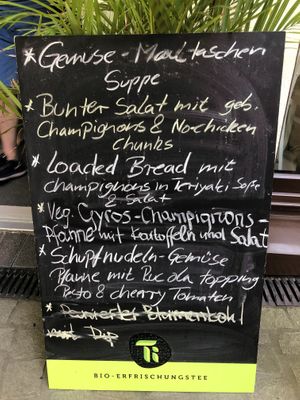 * Gemüse-Maultaschen
Suppe
* Bunter Salat mit geb.
Champignons & No-chicken
chunks
* Loaded Bread mit
champignons in teriyaki Soße
& Salat
* Veg. Gyros-Champignons-
Pfanne mit Kartoffeln und Salat
* Schupfnudeln-Gemüse
Pfanne mit Rucola topping
& cherry Tomaten
* Panierter Blumenkohl
mit Dip
BIO-ERFRISCHUNGSTEE